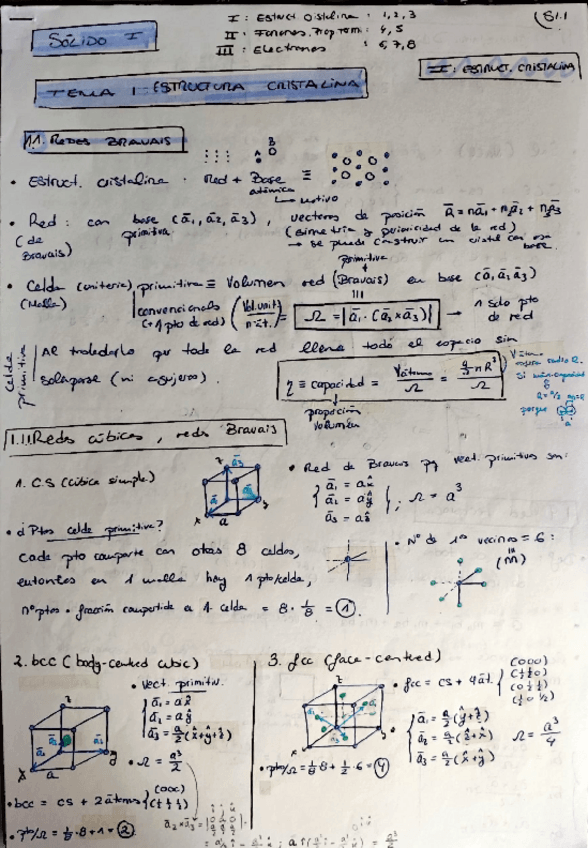 I : Estruct. Cristalina : 1, 2, 3
II : Fonones. Prop. Term. : 4, 5
III : Electrones : 6, 7, 8
S1.1
SÓLIDO I
I : ESTRUCT. CRISTALINA
TEMA 1 : ESTRUCTURA CRISTALINA
1.1. REDES BRAVAIS
• Estruct. cristalina : Red + Base ≡
atómica
↳ motivo
A B
• Red : con base (ā₁, ā₂, ā₃) , vectores de posición R̄ = nā₁ + n₂ā₂ + n₃ā₃
(de Bravais) primitiva (simetría y periodicidad de la red)
→ se puede construir un cristal con esa base.
• Celda (unitaria) primitiva ≡ Volumen red (Bravais) en base (ā₁ ā₂ ā₃)
(Malla) convencional (+1 pto de red) (Vol. unit / nº át.) = Ω = |ā₁ · (ā₂ × ā₃)| → 1 solo pto de red
primitiva
celda primitiva
Al trasladarla por toda la red llena todo el espacio sin
solaparse (ni agujeros).
η ≡ capacidad = Vátomo / Ω = 4/3 π R³ / Ω
proporción volumen
porque
1.1.1. Redes cúbicas, redes Bravais
1. CS (cúbica simple)
• Red de Bravais pq vect. primitivos son:
ā₁ = a x̂
ā₂ = a ŷ ; Ω = a³
ā₃ = a ẑ
• ¿Ptos celda primitiva?
Cada pto comparte con otras 8 celdas,
entonces en 1 malla hay 1 pto/celda,
nº ptos · fracción compartida a 1 celda = 8 · 1/8 = 1.
• Nº de 1ᵒˢ vecinos = 6 :
(m)
2. bcc (body-centred cubic)
• Vect. primitiv.
ā₁ = a x̂
ā₂ = a ŷ
ā₃ = a/2 (x̂ + ŷ + ẑ)
• Ω = a³/2
• bcc = CS + 2 átomos (000) (½ ½ ½)
• pto/Ω = 1/8 · 8 + 1 = 2
3. fcc (face-centred)
• fcc = CS + 4 át. (000) (½ ½ 0) (0 ½ ½) (½ 0 ½)
ā₁ = a/2 (ŷ + ẑ)
ā₂ = a/2 (ẑ + x̂) Ω = a³/4
ā₃ = a/2 (x̂ + ŷ)
• pto/Ω = 1/8 · 8 + 1/2 · 6 = 4